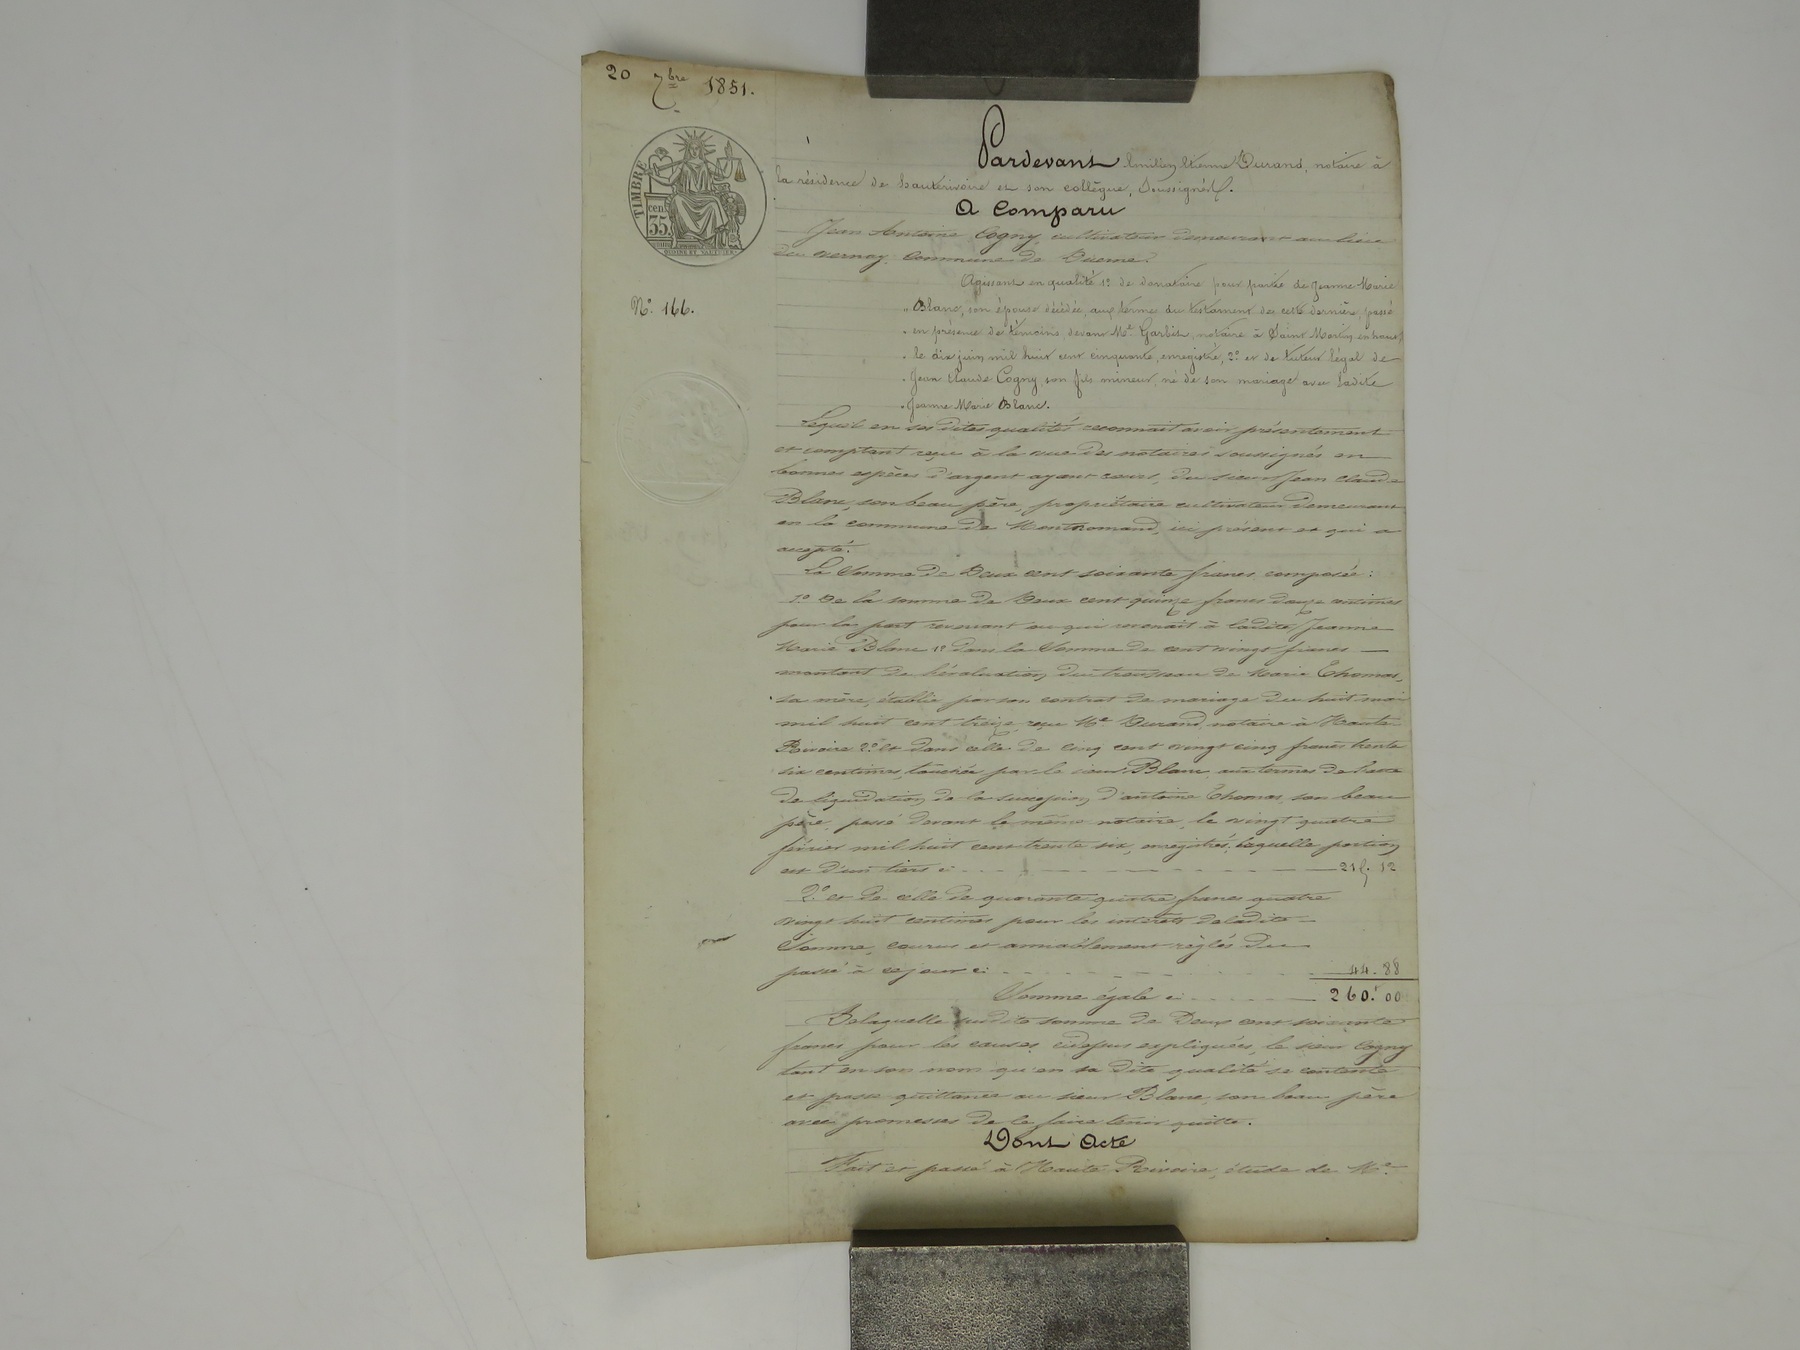 20 7bre 1851.
TIMBRE
35 cen
N° 166.
Pardevant Emilien Etienne Durand, notaire à
la résidence de hauterivoire et son collègue, Soussignés.
A Comparu
Jean Antoine Cogny, cultivateur demeurant au lieu
du vernay, Commune de Duerne.
Agissant en qualité 1° de donataire pour partie de Jeanne Marie
Blanc, son épouse décédée, aux termes du testament de cette dernière, passé
en présence de témoins devant Me Garbit, notaire à Saint Martin en haut,
le dix juin mil huit cent cinquante, enregistré, 2° et de tuteur légal de
Jean Claude Cogny son fils mineur, né de son mariage avec ladite
Jeanne Marie Blanc.
Lequel en ses dites qualités reconnait avoir présentement
et comptant reçu à la vue des notaires soussignés en
bonnes espèces d'argent ayant cours, du sieur Jean Claude
Blanc, son beau père, propriétaire cultivateur demeurant
en la commune de Montromand, ici présent et qui a
accepté.
La Somme de Deux cent soixante francs, composée :
1° De la somme de Deux cent quinze francs douze centimes
pour la part revenant ou qui revenait à ladite Jeanne
Marie Blanc 1° dans la Somme de cent vingt francs
montant de l'évaluation du trousseau de Marie Thomas,
sa mère, établie par son contrat de mariage du huit mai
mil huit cent treize reçu Me Durand, notaire à Haute
Rivoire 2° et dans celle de cinq cent vingt cinq francs trente
six centimes, touchée par le sieur Blanc, aux termes de l'acte
de liquidation de la succession d'antoine Thomas, son beau
père, passé devant le même notaire, le vingt quatre
février mil huit cent trente six, enregistré, laquelle portion
est d'un tiers ci 215. 12
2° et de celle de quarante quatre francs quatre
vingt huit centimes pour les intérêts de ladite
Somme, courus et amiablement réglés du
passé à ce jour ci 44. 88
Somme égale ci 260. 00
Delaquelle susdite somme de Deux cent soixante
francs pour les causes cidessus expliquées, le sieur Cogny
tant en son nom qu'en sa dite qualité se contente
et passe quittance au sieur Blanc, son beau père
avec promesses de le faire tenir quitte.
Dont Acte
Fait et passé à Haute Rivoire, étude de Me